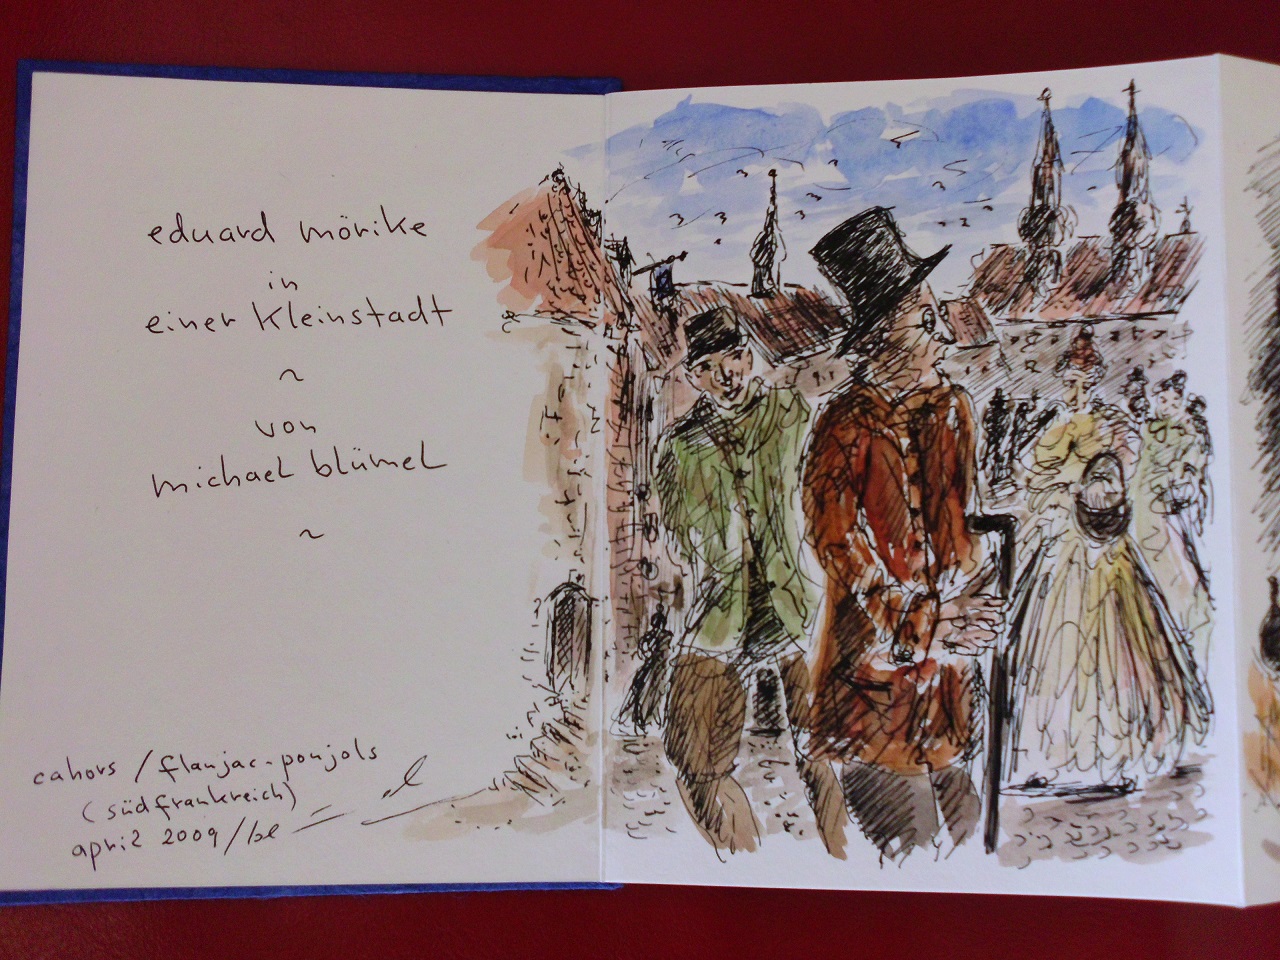 eduard mörike
in
einer kleinstadt
~
von
michael blümel
~
cahors / flaujac-poujols
(südfrankreich)
april 2009 / bl